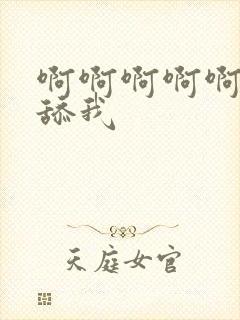 啊啊啊啊啊
舔我
天庭女官